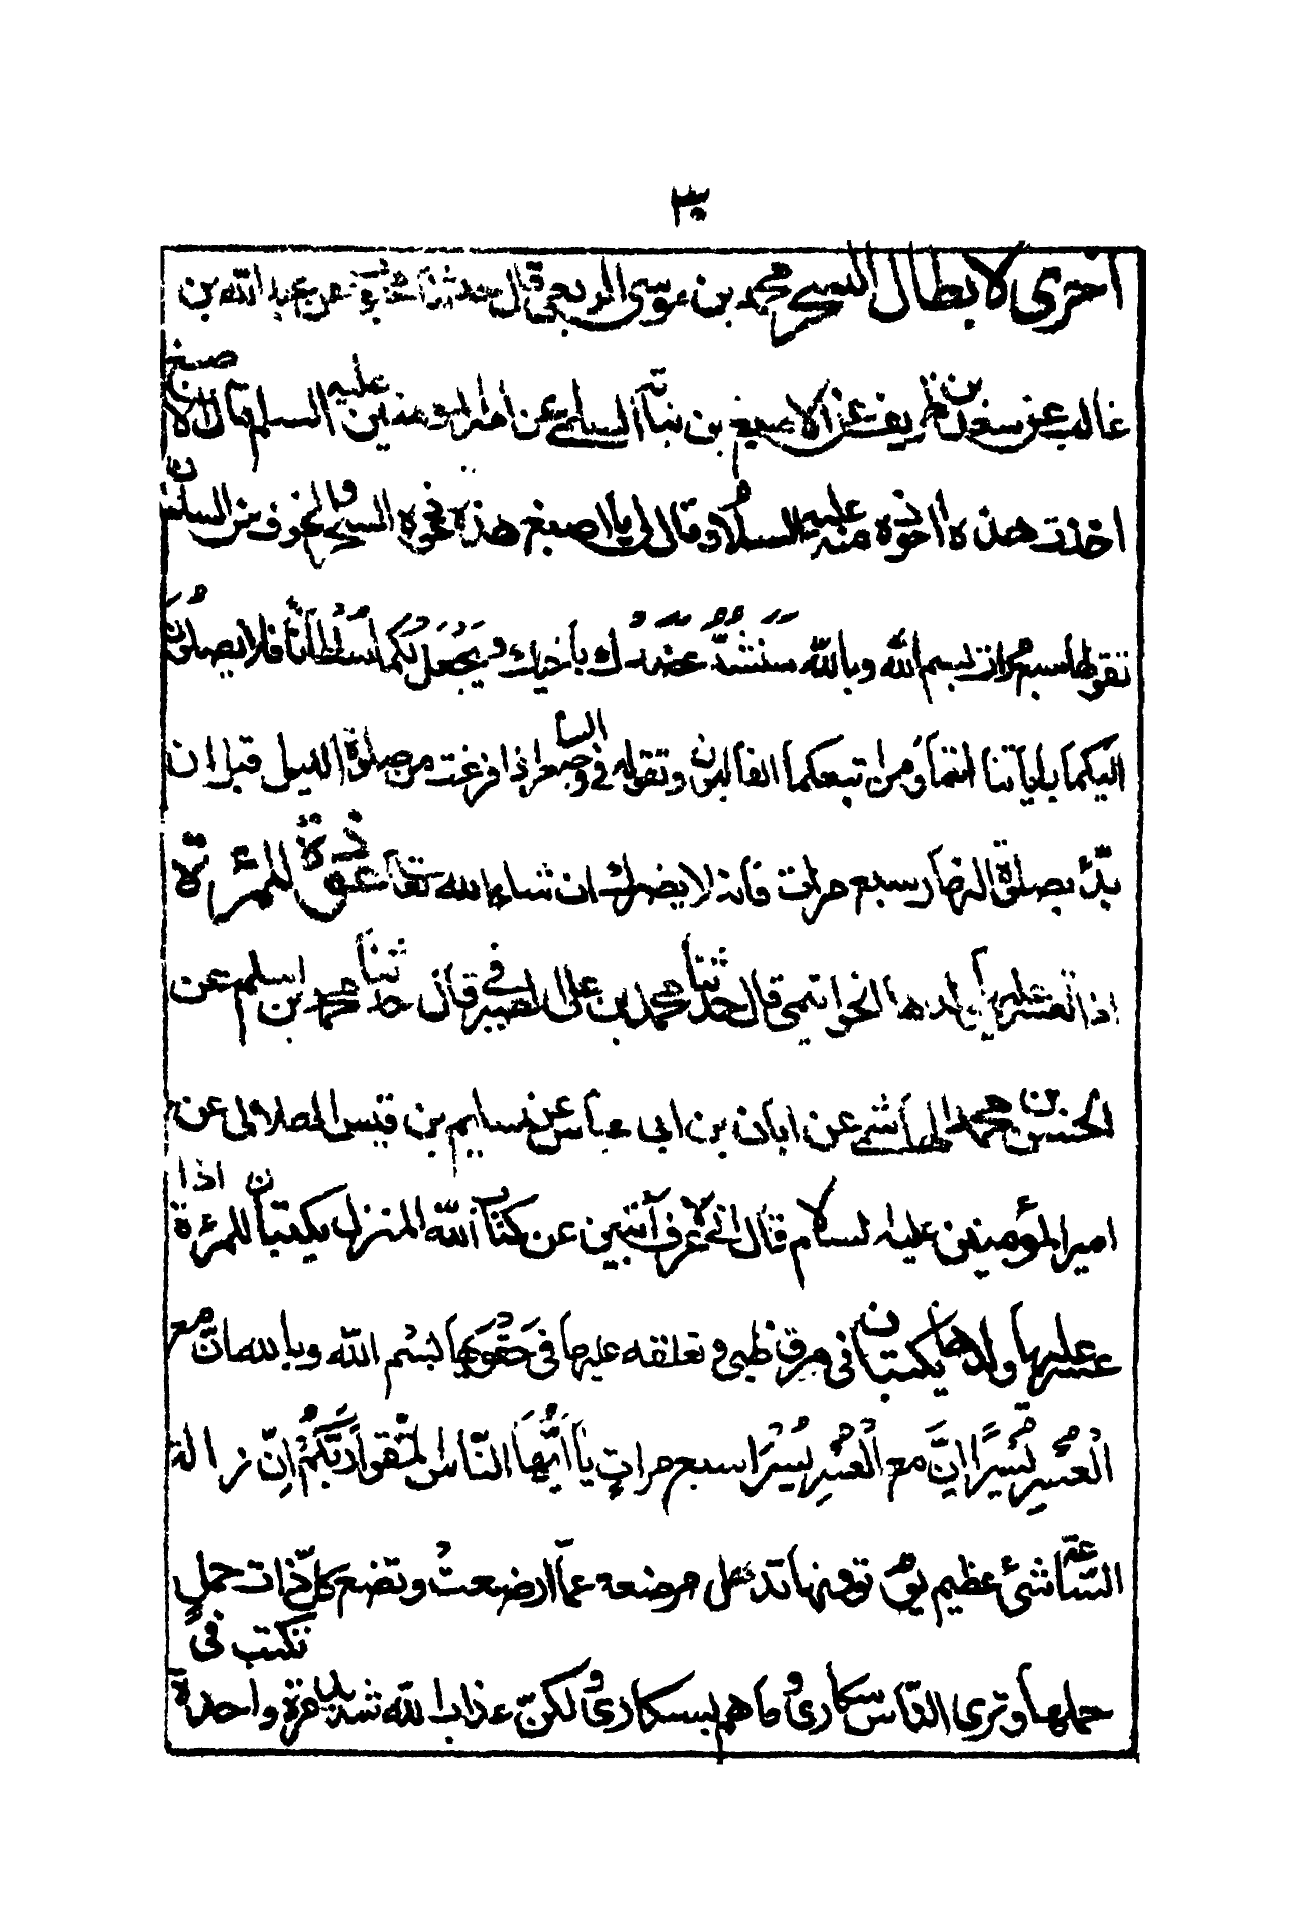 ٣٠
اخرى لابطال السحر محمد بن موسى الربعي قال حدثنا محمد بن عبد الله بن
غالب عن سعد بن ظريف عن الاصبغ بن نباتة السلمي عن امير المؤمنين عليه السلم قال الاصبغ
اخذت هذه العوذة منه عليه السلام وقال لي يا اصبغ هذه عوذة السحر والخوف من السلطان
تقولها سبع مرات بسم الله وبالله سَنَشُدُّ عضدك باخيك ويَجْعَل لَكُما سُلْطانًا فلا يصلون
اليكما باياتنا انتما ومن اتبعكما الغالبون وتقوله في وجه الساحر اذا فرغت من صلوة الليل قبل ان
تبدء بصلوة النهار سبع مرات فانه لا يضرك ان شاء الله تعالى عوذة للمرءة
اذا تعسر عليها ولدها الخواتيمي قال حدثنا محمد بن علي الصيرفي قال حدثنا محمد بن اسلم عن
الحسن بن محمد الهاشمي عن ابان بن ابي عياش عن سليم بن قيس الهلالي عن
امير المؤمنين عليه السلام قال اني لاعرف آيتين عن كتاب الله المنزل يكتبان للمرءة اذا
عسر عليها ولدها يكتبان في رق ظبي وتعلقه عليها في حَقْوَيها بسم الله وبالله انّ مع
الْعُسْرِ يُسْرًا اِنَّ مع الْعُسْرِ يُسْرًا سبع مراتٍ يا اَيُّها النّاس اتّقوا رَبَّكُمْ اِنّ زلزلة
السّاعة شئ عظيم يوم ترونها تذهل كل مرضعة عمّا ارضعت وتضع كلّ ذات حملٍ
حملها وترى النّاس سكارى وما هم بسكارى ولكنّ عذاب الله شديد تكتب في مرة واحدة